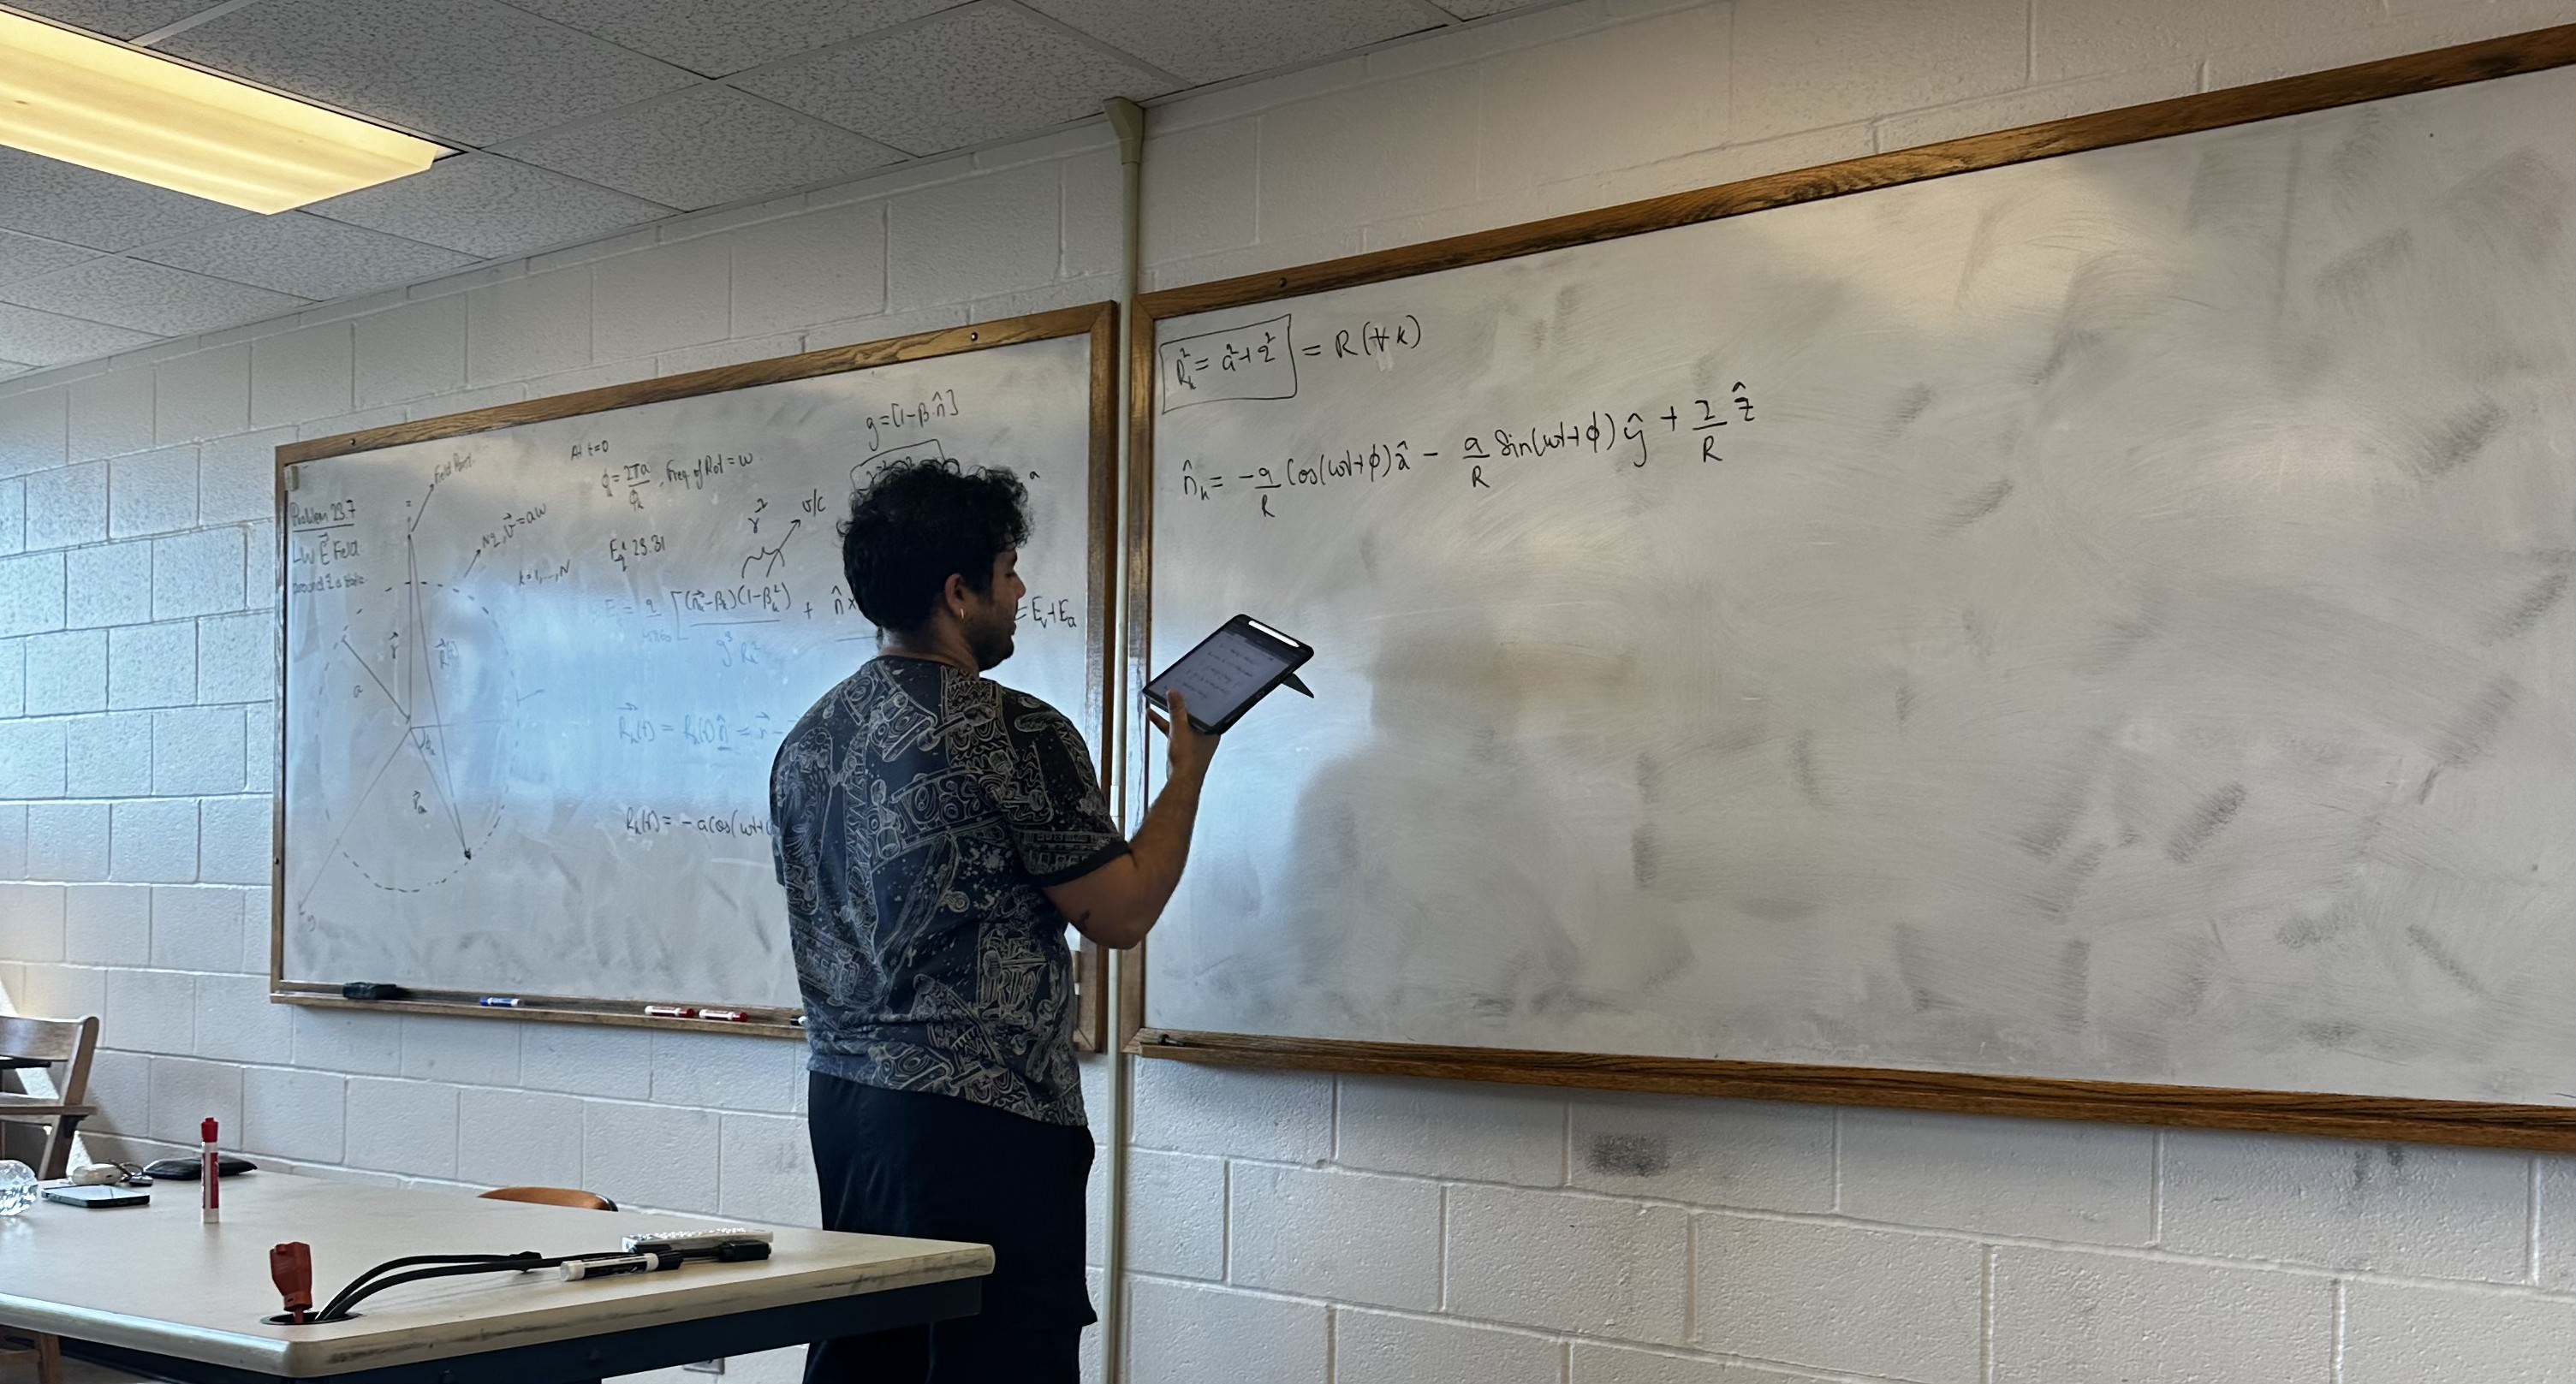 Problem 23.7
LW E⃗ Field
around z a
Field Point
z
Nq, v⃗ = aω
k=1,...,N
a
r⃗
At t=0
ϕ = 2πa/ϕk, Freq of Rot = ω
Eq 23.31
g = [1-β.n̂]
γ²
v/c
a
E = q/4πε₀ [ (n⃗-βk)(1-βk²)/g³Rk² + n̂ ×
= Ev+Ea
R⃗k(t) = Rk(t)n̂ = r⃗ -
Rk(t) = -acos(ωt+
Rk² = a²+z² = R(∀k)
n̂k = -a/R Cos(ωt+ϕ)x̂ - a/R Sin(ωt+ϕ)ŷ + z/R ẑ